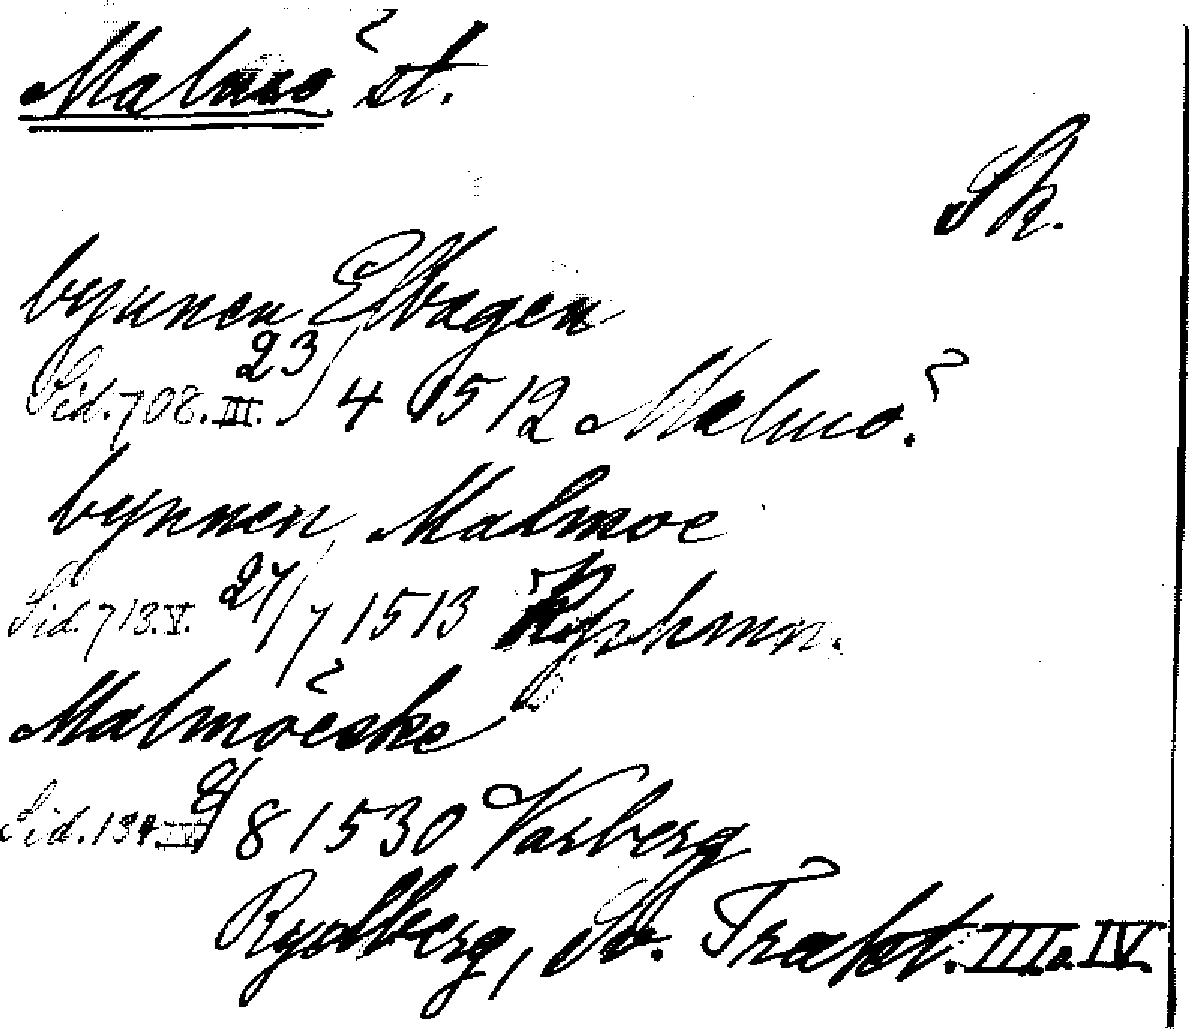 Malmö st.
Sk.
bynnen Elbagen
Sid. 708. III. 23/4 1512 Malmö.
bynnen Malmoe
Sid. 713. V. 27/7 1513 Kphmn.
Malmöeske
Sid. 134 IV 2/8 1530 Varberg
Rydberg, Sv. Trakt. III o. IV.